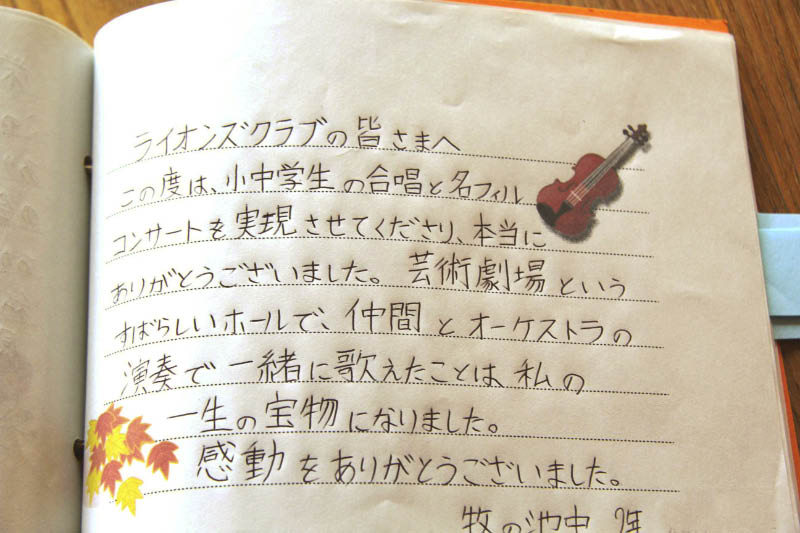 ライオンズクラブの皆さまへ
この度は、小中学生の合唱と名フィル
コンサートを実現させてくださり、本当に
ありがとうございました。芸術劇場という
すばらしいホールで、仲間とオーケストラの
演奏で一緒に歌えたことは、私の
一生の宝物になりました。
感動をありがとうございました。
牧の池中 2年